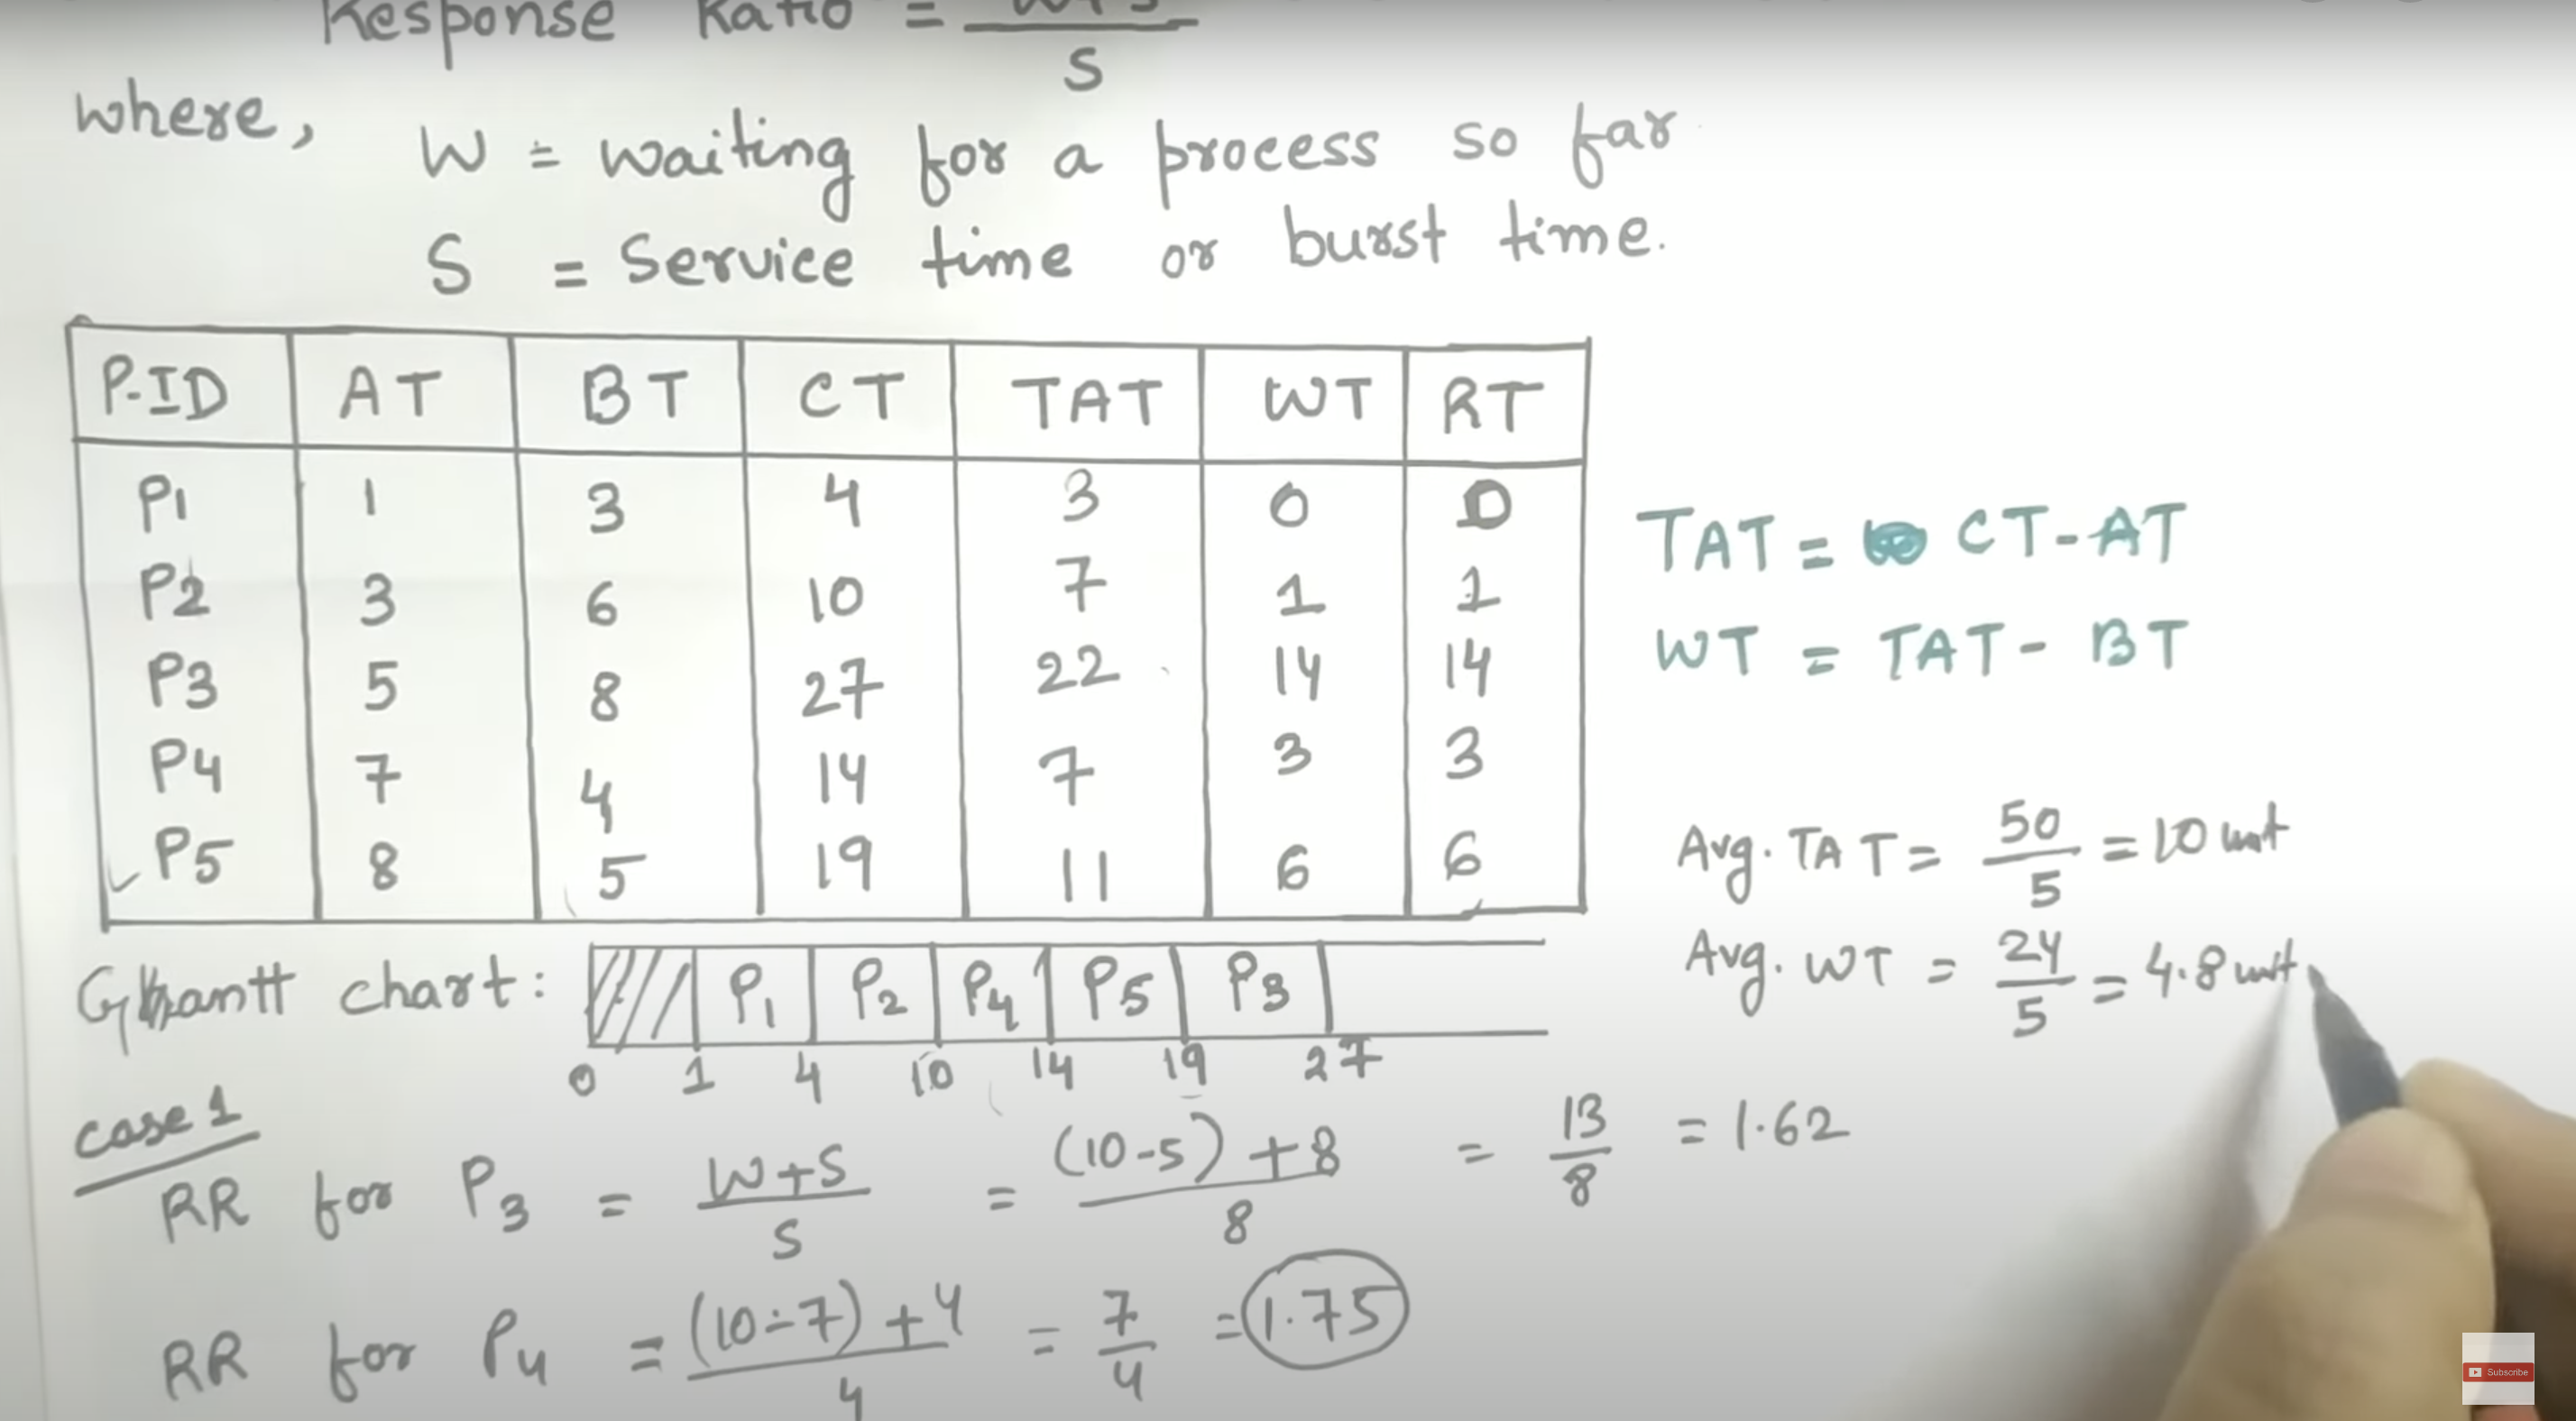 Response Ratio = W+S / S
where,
W = waiting for a process so far
S = Service time or burst time.
P-ID AT BT CT TAT WT RT
P1 1 3 4 3 0 0
P2 3 6 10 7 1 1
P3 5 8 27 22 14 14
P4 7 4 14 7 3 3
P5 8 5 19 11 6 6
TAT = CT-AT
WT = TAT - BT
Avg. TAT = 50/5 = 10 unit
Avg. WT = 24/5 = 4.8 unit
Gantt chart: P1 P2 P4 P5 P3
0 1 4 10 14 19 27
case 1
RR for P3 = W+S / S = (10-5)+8 / 8 = 13/8 = 1.62
RR for P4 = (10-7)+4 / 4 = 7/4 = 1.75
Subscribe